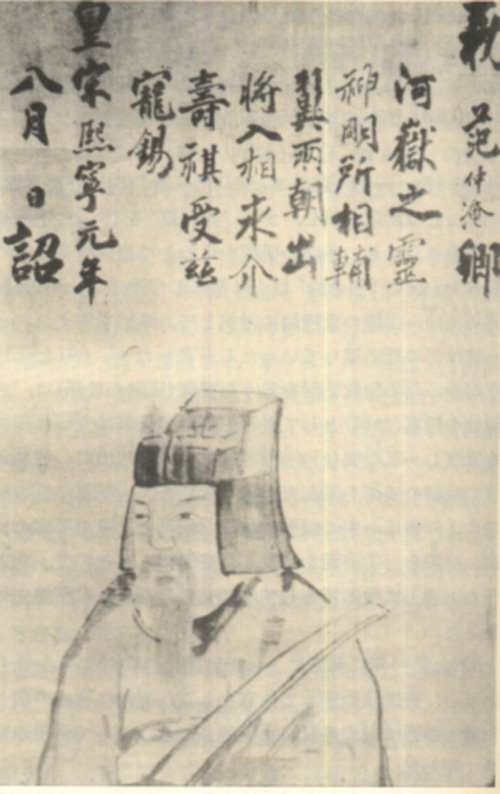 范仲淹卿
河嶽之靈
神明所相輔
翼兩朝出
將入相求介
壽祺受茲
寵錫
皇宋熙寧元年
八月 日詔